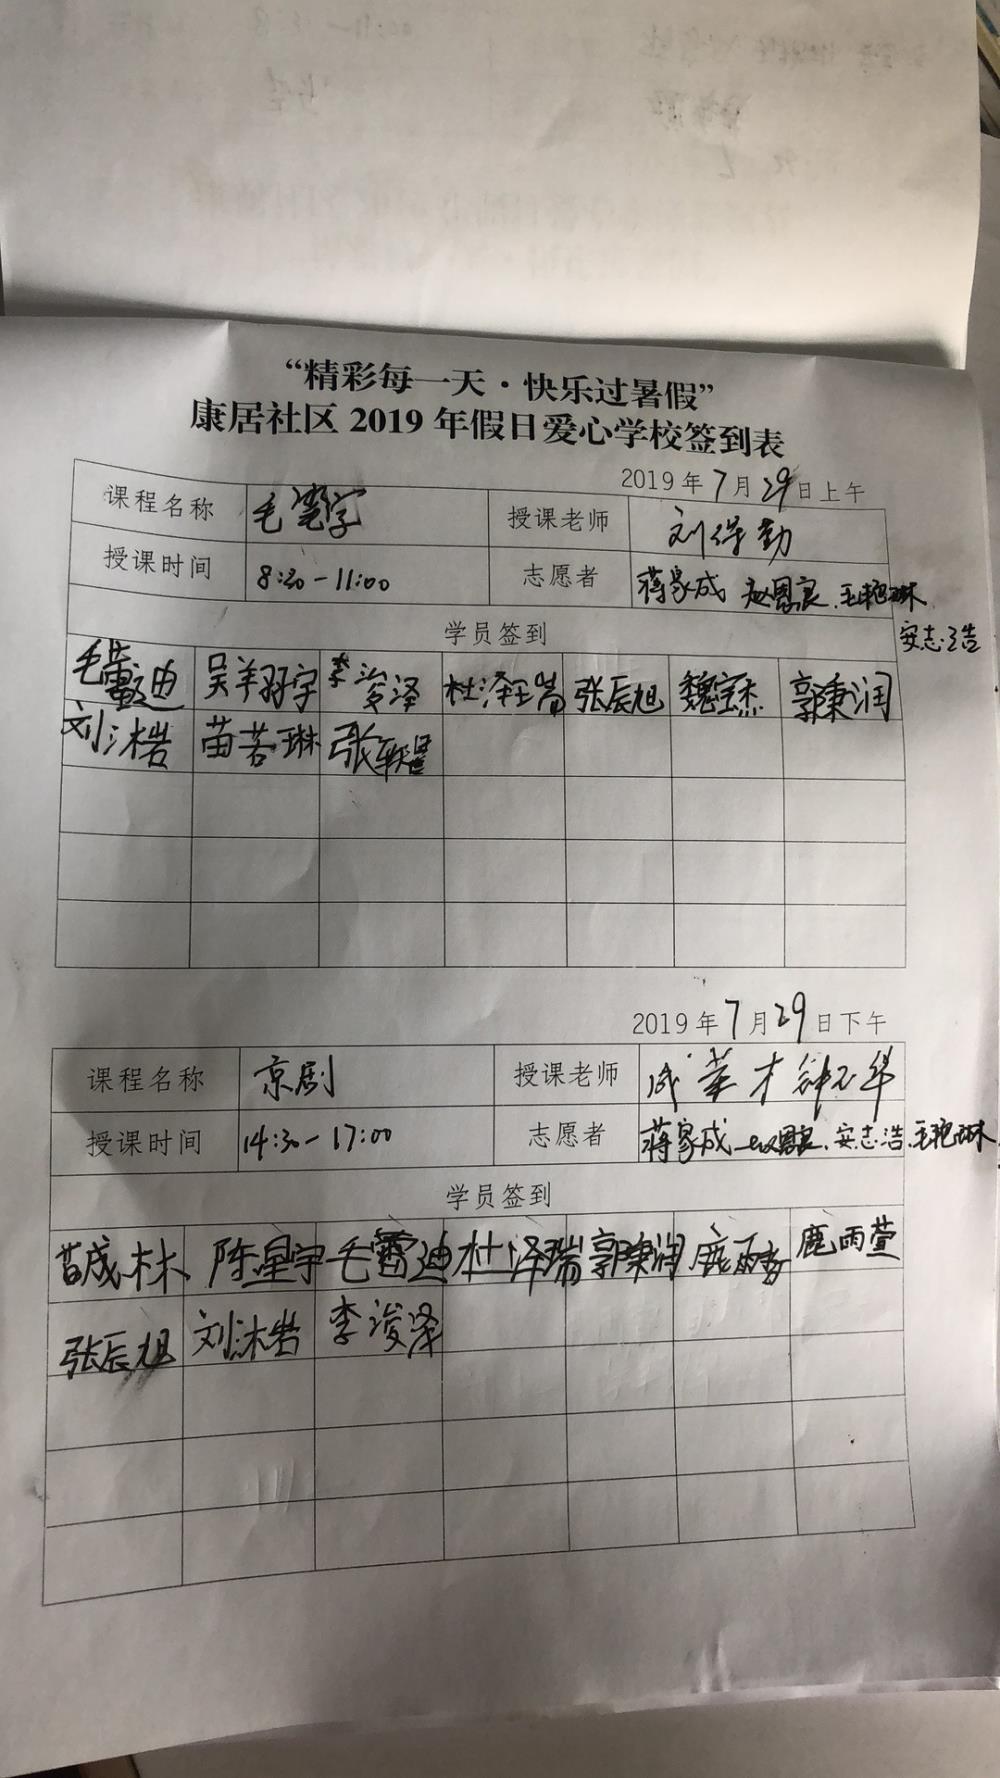 “精彩每一天·快乐过暑假”
康居社区 2019 年假日爱心学校签到表
2019 年 7 月 29 日上午
课程名称 毛笔字 授课老师 刘得勤
授课时间 8:30-11:00 志愿者 蒋家成 赵恩良、王艳琳
安志浩
学员签到
毛蕾迪 吴羊羽宇 李浚泽 杜泽瑞 张辰旭 魏宝杰 郭秉润
刘沐岩 苗若琳 张
2019 年 7 月 29 日下午
课程名称 京剧 授课老师 成荣才
授课时间 14:30-17:00 志愿者 蒋家成 赵恩良、安志浩、王艳琳
学员签到
苗成林 陈星宇 毛蕾迪 杜泽瑞 郭秉润 鹿雨 鹿雨萱
张辰旭 刘沐岩 李浚泽